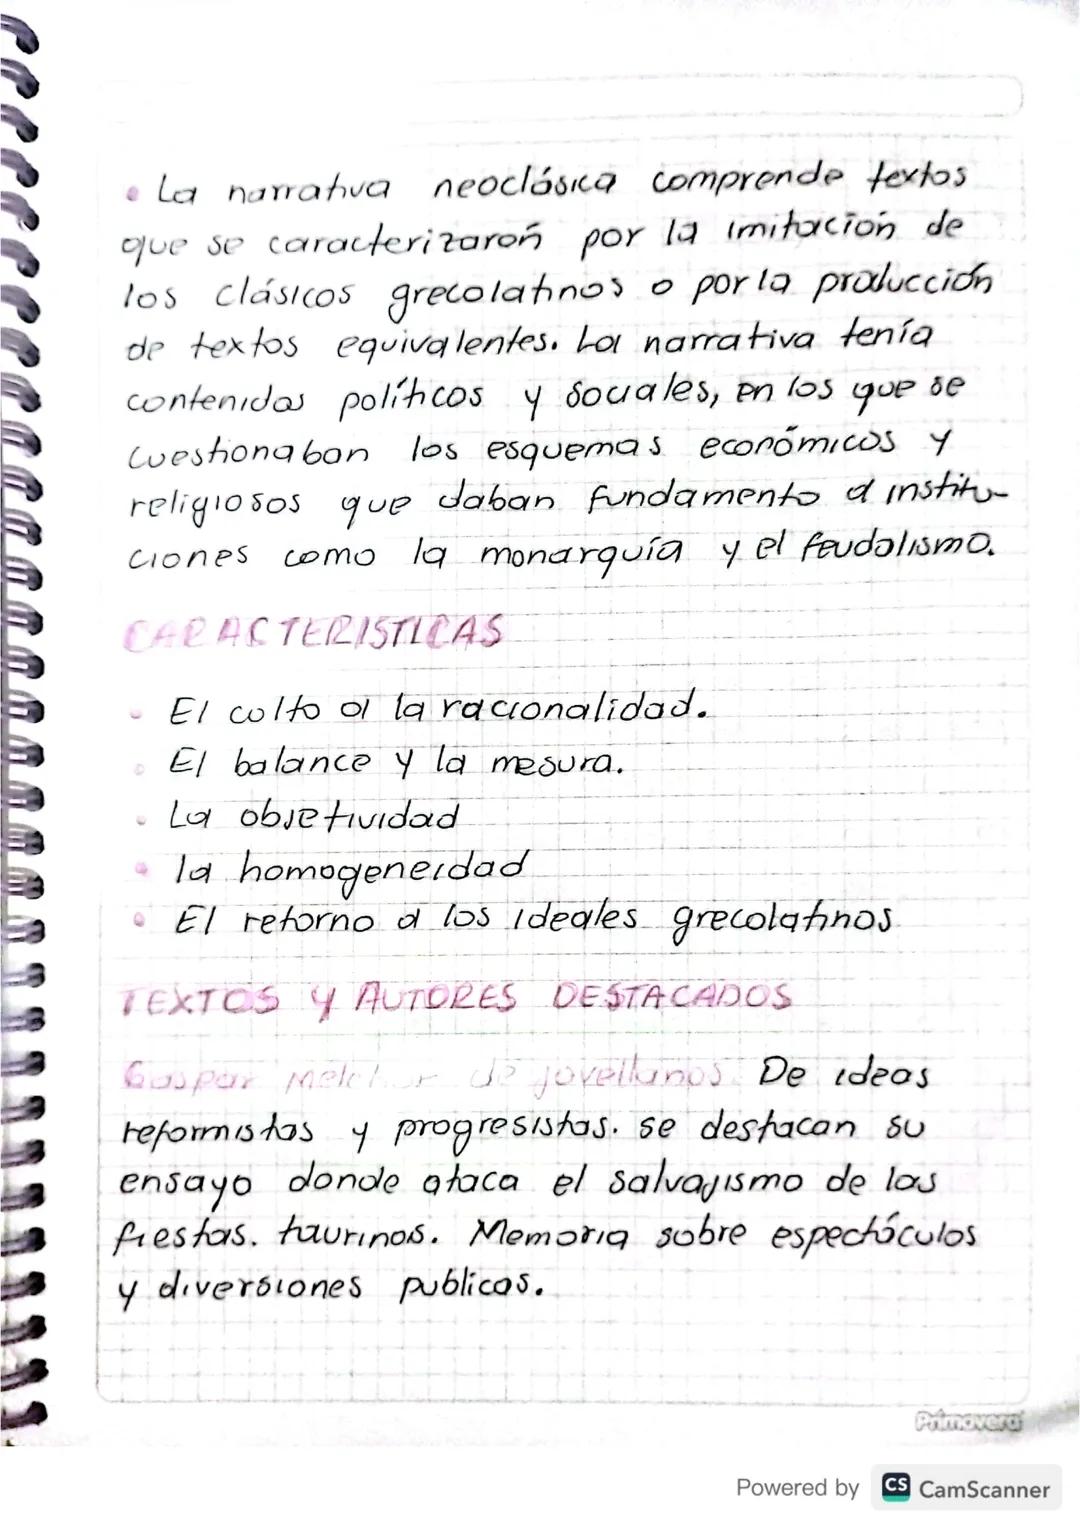 • La narrativa neoclásica comprende textos
que se caracterizarón por la imitación de
los clásicos grecolatinos o por la producción
de textos equivalentes. La narrativa tenía
contenidas políticos y sociales, en los que se
cuestionaban los esquemas económicos y
religiosos que daban fundamento a institu-
ciones como la monarquía y el feudalismo.
CARACTERISTICAS
• El culto a la racionalidad.
• El balance y la mesura.
• La objetividad
• la homogeneidad
• El retorno a los ideales grecolatinos
TEXTOS Y AUTORES DESTACADOS
Gaspar Melchor de jovellanos. De ideas
reformistas y progresistas. se destacan su
ensayo donde ataca el salvajismo de las
fiestas. taurinas. Memoria sobre espectáculos
y diversiones publicas.
Primavera
Powered by CS CamScanner